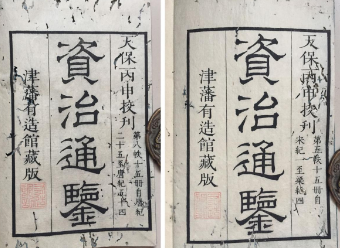 天保丙申挍刊
第八帙十五册自唐紀
二十五至唐紀五十四
資治通鑑
津藩有造館藏版
天保丙申挍刊
第五帙十五册自
宋紀一至梁紀四
資治通鑑
津藩有造館藏版